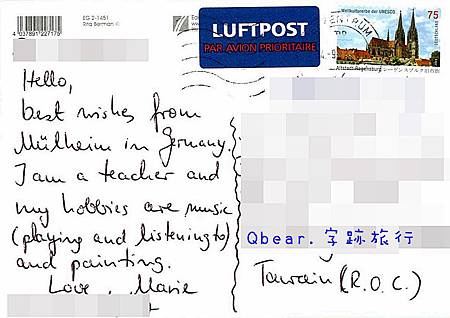 EG 2-1451
4037891227175
LUFTPOST
PAR AVION PRIORITAIRE
ZENTRUM
Weltkulturerbe der UNESCO
75
Altstadt Regensburg
Hello,
best wishes from
Mülheim in Germany.
I am a teacher and
my hobbies are music
(playing and listening to)
and painting.
Love, Marie
Qbear. 字跡旅行
Taiwain (R.O.C.)